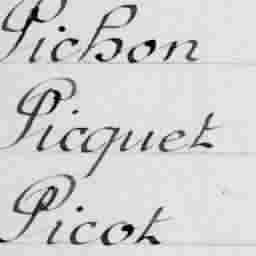 Pichon
Picquet
Picot